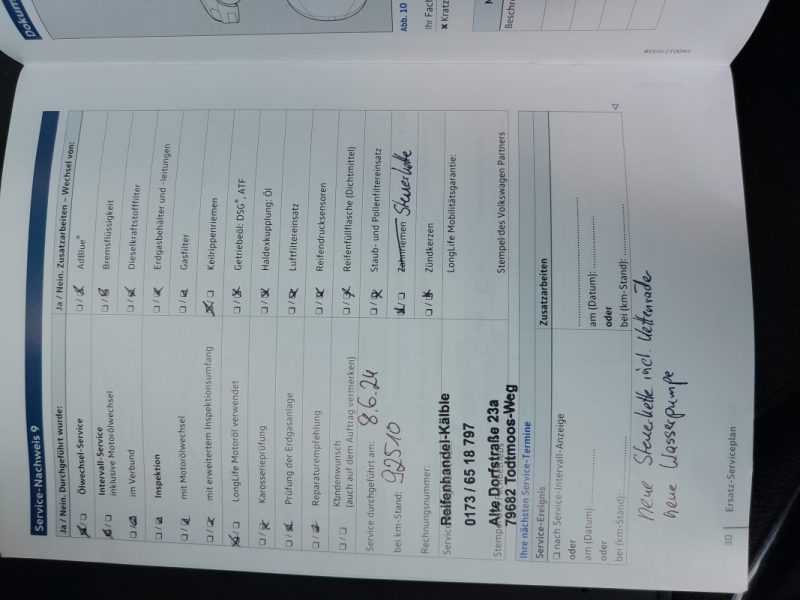 Service-Nachweis 9
Ja / Nein. Durchgeführt wurde:
☒ / ☐ Ölwechsel-Service
☒ / ☐ Intervall-Service
inklusive Motorölwechsel
☐ / ☒ im Verbund
☐ / ☒ Inspektion
☐ / ☒ mit Motorölwechsel
☐ / ☒ mit erweitertem Inspektionsumfang
☒ / ☐ LongLife Motoröl verwendet
☐ / ☒ Karosserieprüfung
☐ / ☒ Prüfung der Erdgasanlage
☐ / ☒ Reparaturempfehlung
☐ / ☐ Kundenwunsch
(auch auf dem Auftrag vermerken)
Service durchgeführt am: 8.6.24
bei km-Stand: 92510
Rechnungsnummer:
Reifenhandel-Kälble
0173 / 65 18 797
Alte Dorfstraße 23a
79682 Todtmoos-Weg
Ja / Nein. Zusatzarbeiten – Wechsel von:
☐ / ☒ AdBlue®
☐ / ☒ Bremsflüssigkeit
☐ / ☒ Dieselkraftstofffilter
☐ / ☒ Erdgasbehälter und -leitungen
☐ / ☒ Gasfilter
☒ / ☐ Keilrippenriemen
☐ / ☒ Getriebeöl: DSG®, ATF
☐ / ☒ Haldexkupplung: Öl
☐ / ☒ Luftfiltereinsatz
☐ / ☒ Reifendrucksensoren
☐ / ☒ Reifenfüllflasche (Dichtmittel)
☐ / ☒ Staub- und Pollenfiltereinsatz
☒ / ☐ Zahnriemen Steuerkette
☐ / ☒ Zündkerzen
LongLife Mobilitätsgarantie:
Stempel des Volkswagen Partners
Ihre nächsten Service-Termine
Service-Ereignis
☐ nach Service-Intervall-Anzeige
oder
am (Datum):
oder
bei (km-Stand):
Zusatzarbeiten
am (Datum):
oder
bei (km-Stand):
neue Steuerkette incl. Kettenräder
neue Wasserpumpe
30 Ersatz-Serviceplan
Dokum
Abb. 10
Ihr Fach
x Kratz
Beschri